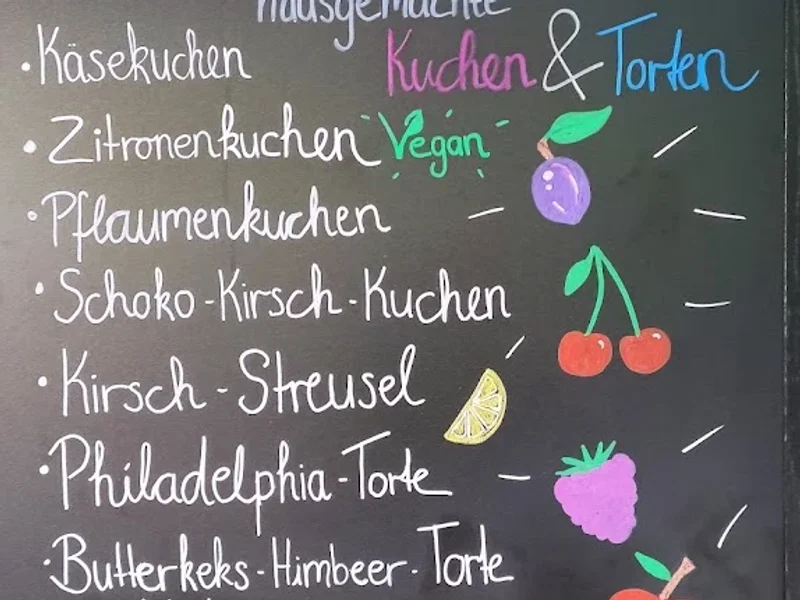 hausgemachte
Kuchen & Torten
· Käsekuchen
· Zitronenkuchen Vegan
· Pflaumenkuchen
· Schoko-Kirsch-Kuchen
· Kirsch-Streusel
· Philadelphia-Torte
· Butterkeks-Himbeer-Torte